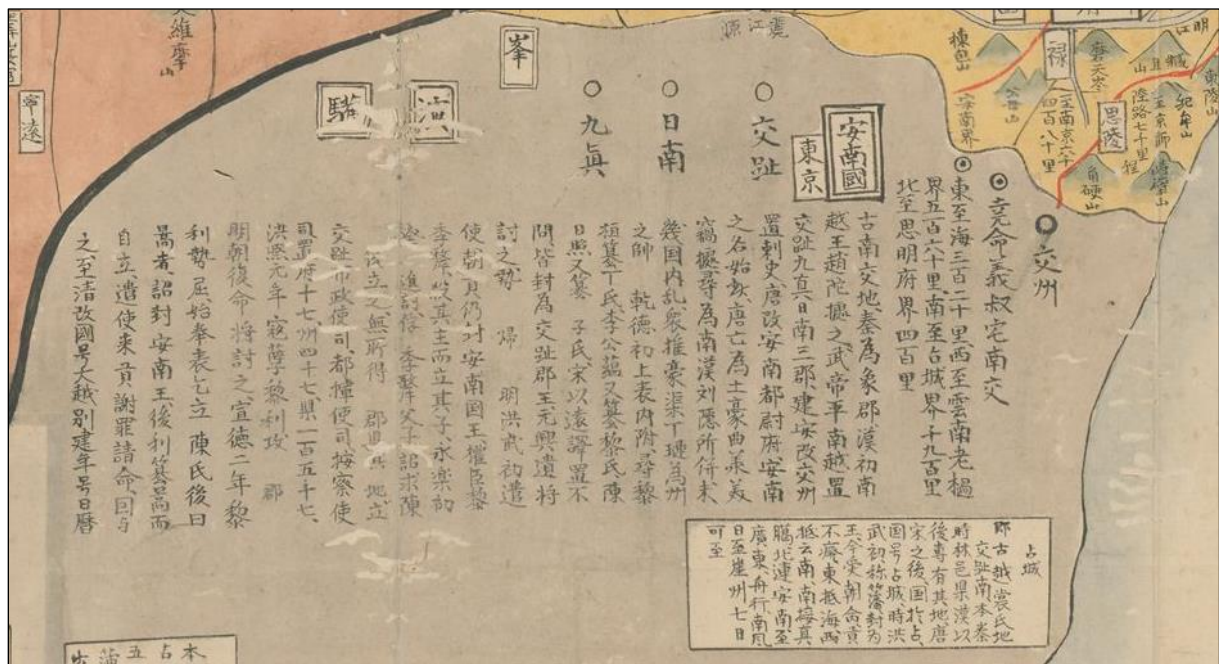 明江
龍江源
棟包山
安南界
祿
磨天岑
至南京六千
四百八十里
至京師
陸路七千里
思陵
角硬山
維摩
山
寧遠
峯
洪
驩
安南國
東京
○交趾
○日南
○九眞
交州
堯命羲叔宅南交
東至海三百二十里西至雲南老撾
界五百六十里南至占城界千九百里
北至思明府界四百里
古南交地秦為象郡漢初南
越王趙陀據之武帝平南越置
交趾九真日南三郡建安改交州
置刺史唐改安南都尉府安南
之名始此唐亡為土豪曲承美
竊據尋為南漢刘隱所併未
幾国内乱衆推豪渠丁璉為州
之帥 乾德初上表内附尋黎
桓簒丁氏李公蘊又簒黎氏陳
日照又簒 子氏宋以遠譯置不
問皆封為交趾郡王元興遣將
討之勢 帰 明洪武初遣
使朝貢仍封安南国王權臣黎
季犛殺其主而立其子永楽初
進討俘季犛父子詔求陳
後立之無所得 郡県其地立
交趾布政使司都揮使司按察使
司置府十七州四十七県一百五十七
洪熙元年寇孽黎利攻 郡
明朝復命 将討之宣德二年黎
利勢屈始奉表乞立 陳氏後曰
暠者詔封安南王後利簒暠而
自立遣使来貢謝罪請命国与
之至清改國号大越別建年号日暦
占城
即古越裳氏地
交趾南本秦
時林邑県漢以
後專有其地唐
宋之後国於占
国号占城時洪
武初称藩封為
王今受朝命貢
不廃東抵海西
抵云南南接真
臘北連安南至
廣東舟行南風
日至崖州七日
可至
本
占
五